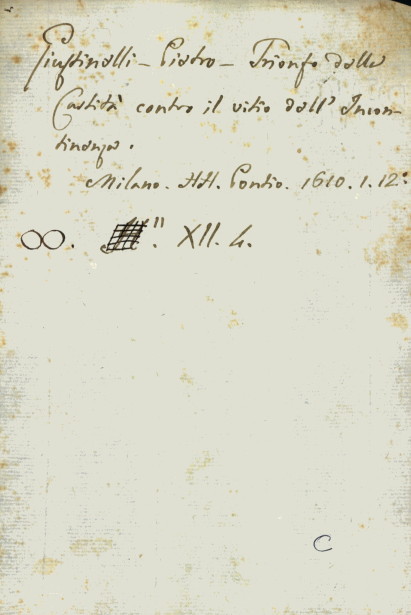 Giustinelli - Pietro - Trionfo della
Castità contro il vitio dell' Incon-
tinenza.
Milano. HH. Pontio. 1610. 1. 12°.
OO. XII. 4.
C